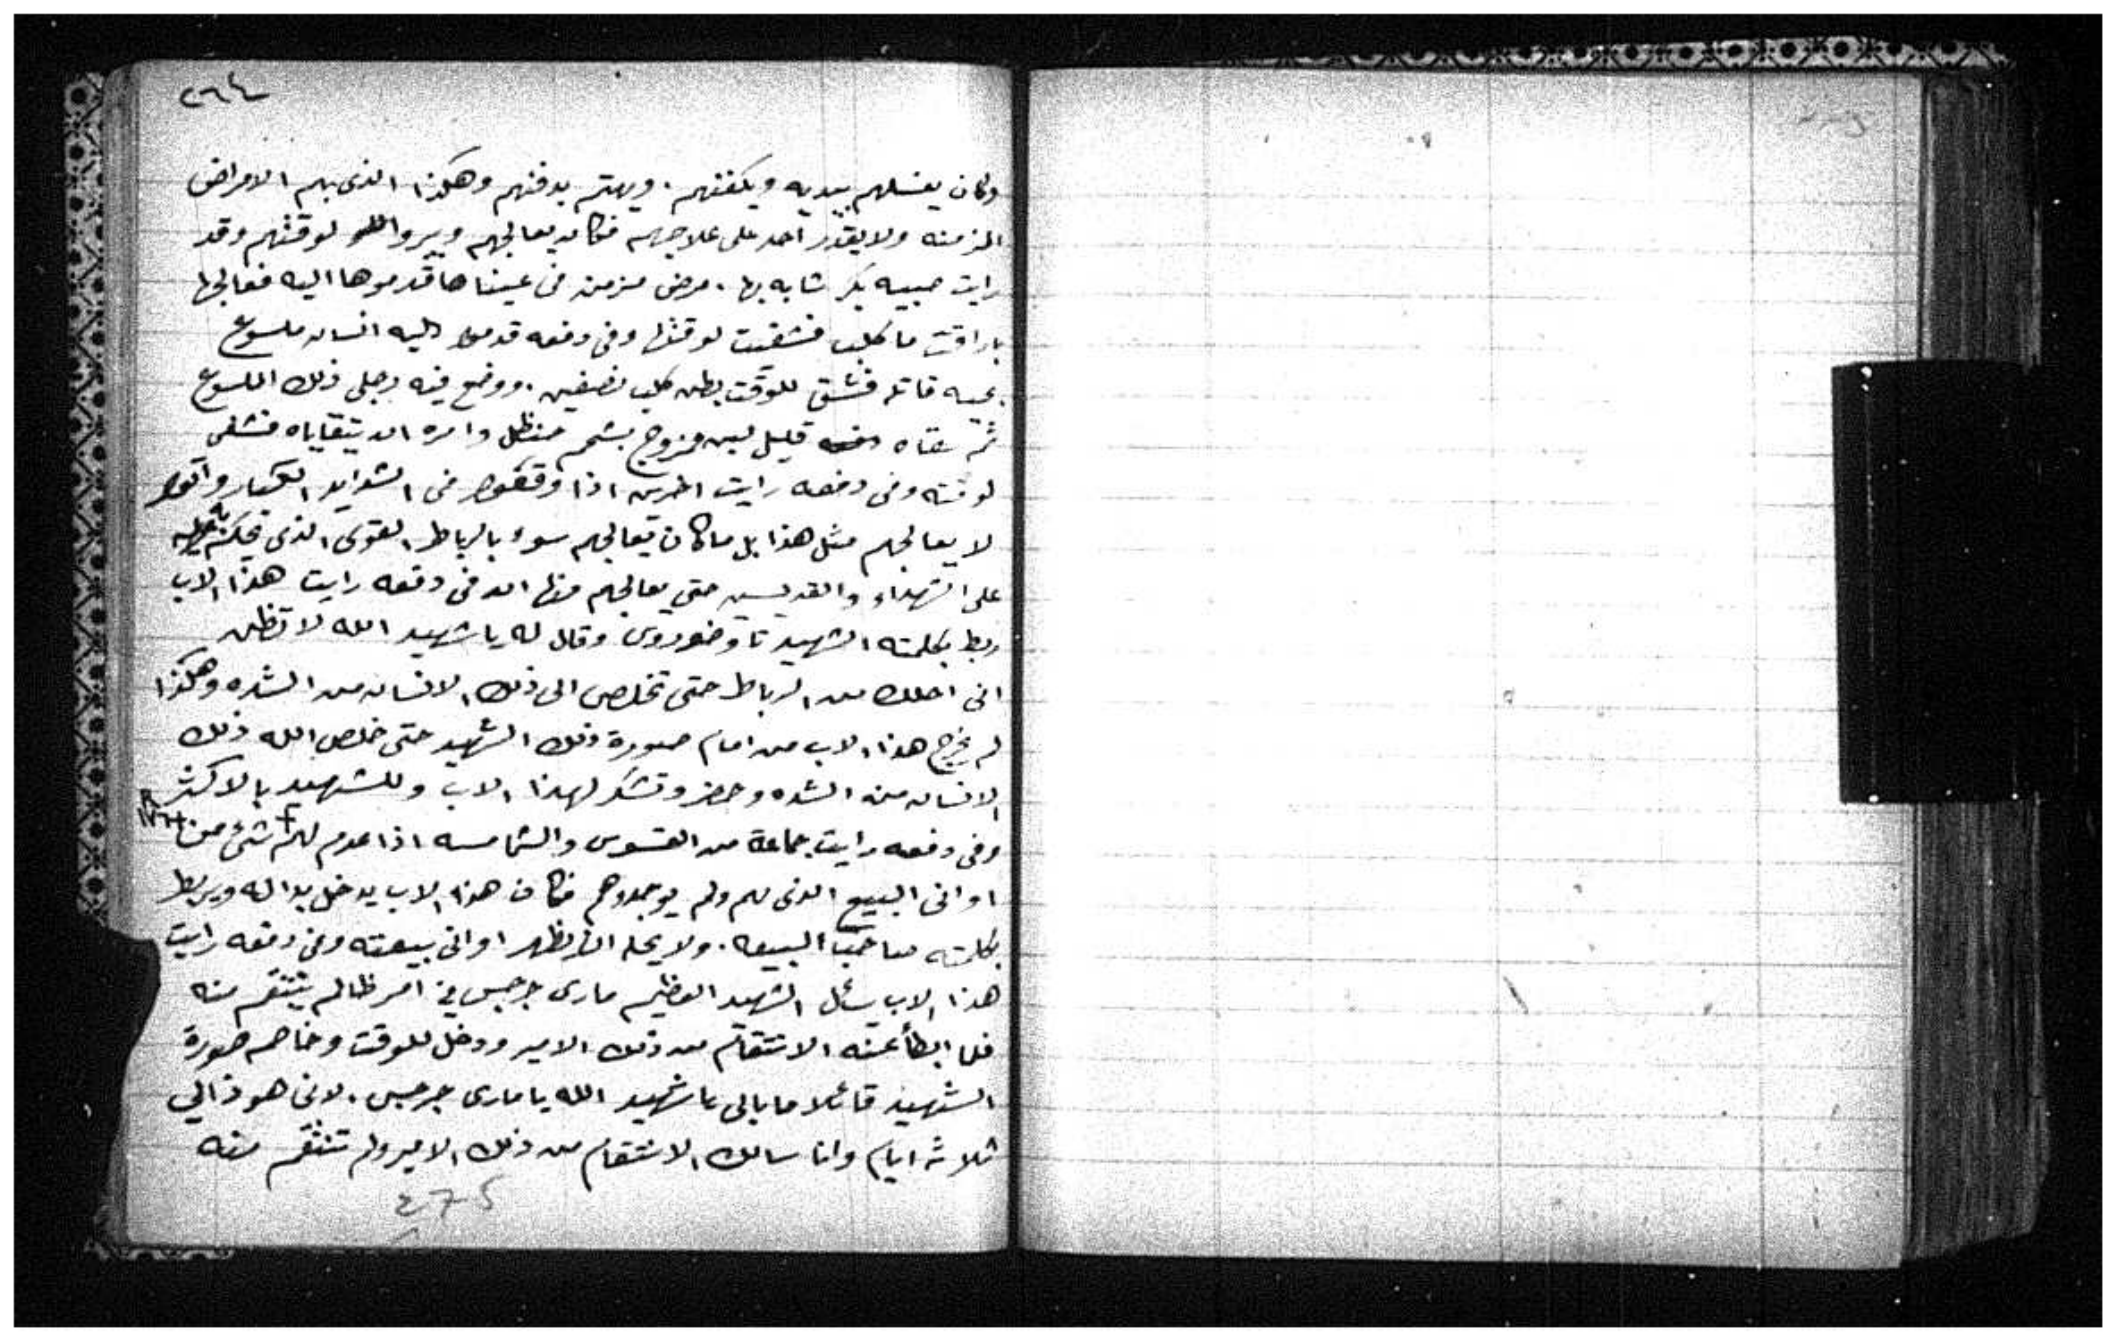 ٢٦٤
وكان يغسلهم بيديه ويكفنهم . ويهتم بدفنهم وهكذا الذى بهم الامراض
المزمنه ولا يقدر احد على علاجهم فكان يعالجهم ويبروا لوقتهم وقد
رايت صبيه بكر شابه بها . مرض مزمن فى عيناها قدموها اليه فعالجها
كلب فشفيت لوقتها وفى دفعه قدموا اليه انسان ملسوع
بحيه قاتله فشق للوقت بطن كلب نصفين . ووضع فيه رجلى ذلك الملسوع
ثم سقاه قليل لبن ممزوج بشحم حنظل وامره ان يتقاياه فشفى
لوقته وفى دفعه رايت اخرين اذا وقعوا فى الشدايد الكبار واتوا
لا يعالجهم مثل هذا بل ما كان يعالجهم سوء بالرباط القوى الذى
على الشهداء والقديسين حتى يعالجهم منها ان فى دفعه رايت هذا الاب
ربط بكلمته الشهيد تاوضوروس وقال له يا شهيد الله لا تظن
انى احلك من الرباط حتى تخلص الى ذلك الانسان من الشده وهكذا
لم يخرج هذا الاب من امام صورة ذلك الشهيد حتى خلص الله ذلك
الانسان من الشده وحضر وتشكر لهذا الاب وللشهيد بالاكثر
وفى دفعه رايت جماعة من القسوس والشمامسه اذا عدم لهم شئ من
اوانى البيع الذى لهم ولم يوجدوهم فكان هذا الاب يدخل بداله ويربط
بكلمته صاحب البيعه . ولا يحله ان يظهر اوانى بيعته وفى دفعه رايت
هذا الاب سأل الشهيد العظيم مارى جرجس فى امر ظالم ينتقم منه
فلما ابطأ عنه الانتقام من ذلك الامير ودخل للوقت وخاصم صورة
الشهيد قائلا ما بالى يا شهيد الله يا مارى جرجس . لانى هوذا لي
ثلاثه ايام وانا سالك الانتقام من ذلك الامير ولم تنتقم منه